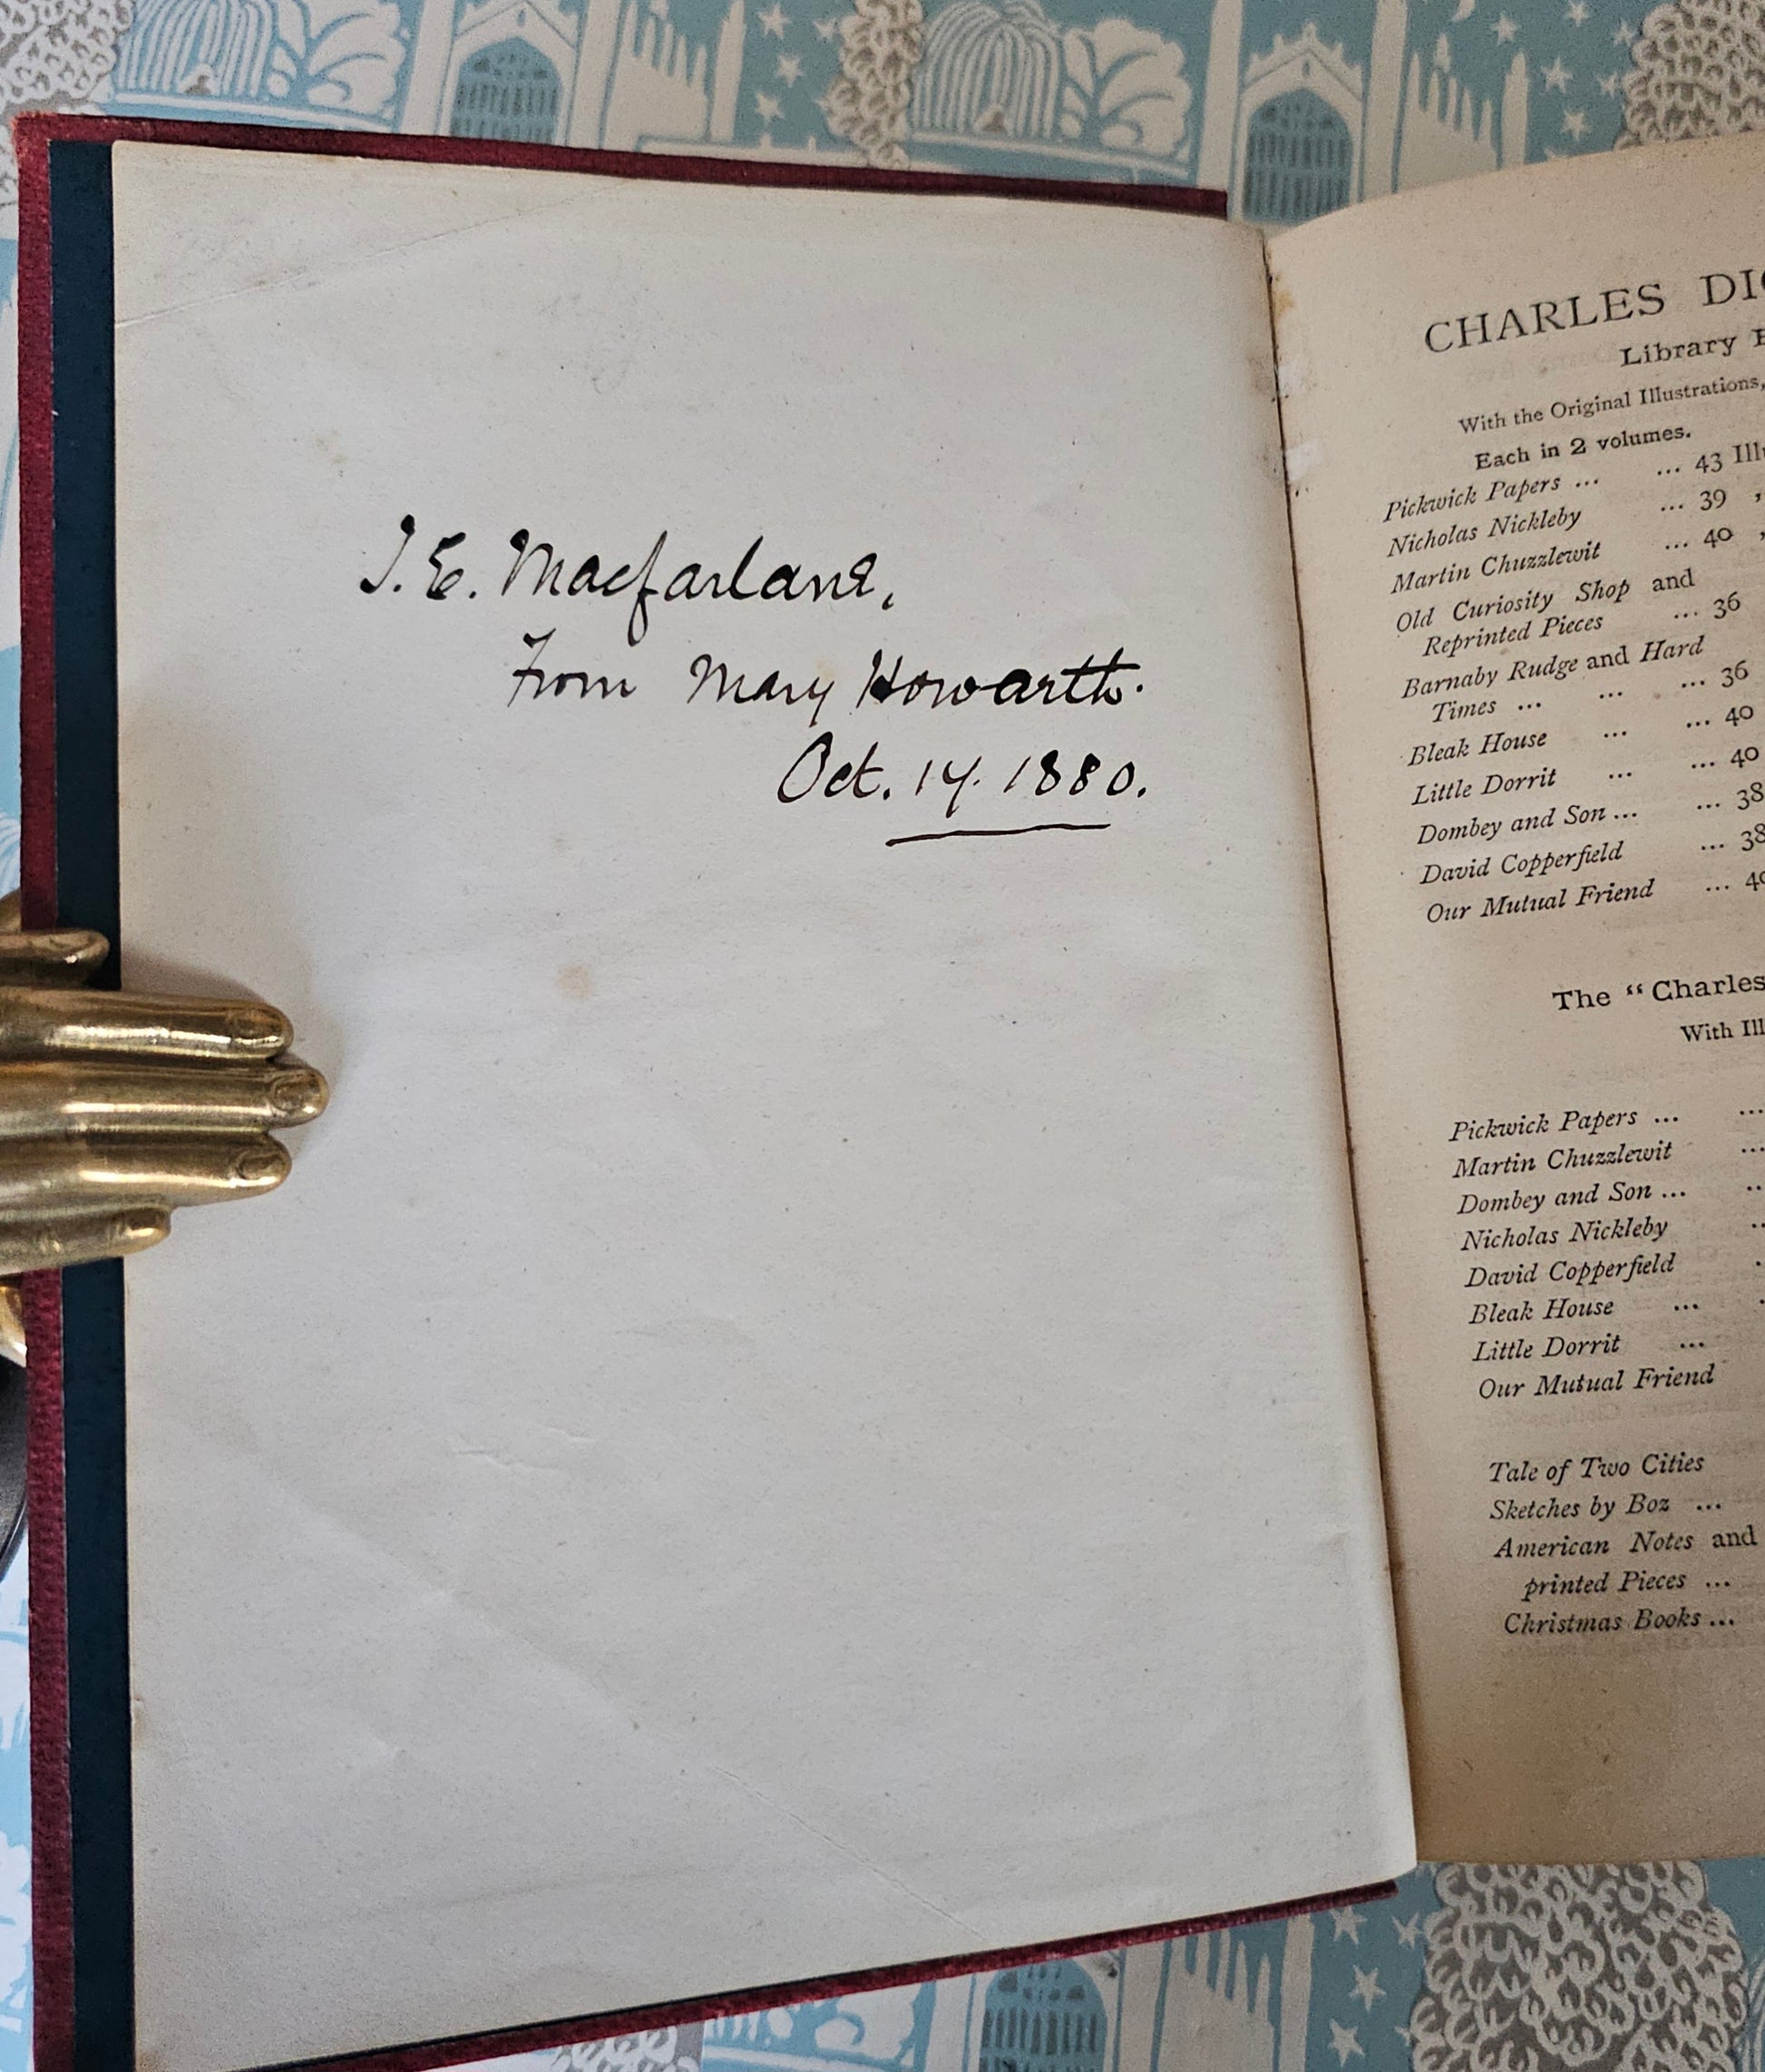 J. E. Macfarlane,
From Mary Howarth.
Oct. 14. 1880.
CHARLES
Library
With the Original Illustrations,
Each in 2 volumes.
Pickwick Papers ... ... 43
Nicholas Nickleby ... 39
Martin Chuzzlewit ... 40
Old Curiosity Shop and
Reprinted Pieces ... 36
Barnaby Rudge and Hard
Times ... ... ... 36
Bleak House ... ... 40
Little Dorrit ... ... 40
Dombey and Son ... ... 38
David Copperfield ... 38
Our Mutual Friend ...
The "Charles
With
Pickwick Papers ... ...
Martin Chuzzlewit ...
Dombey and Son ... ..
Nicholas Nickleby ..
David Copperfield .
Bleak House ... .
Little Dorrit ...
Our Mutual Friend
Tale of Two Cities
Sketches by Boz ...
American Notes and
printed Pieces ...
Christmas Books ...